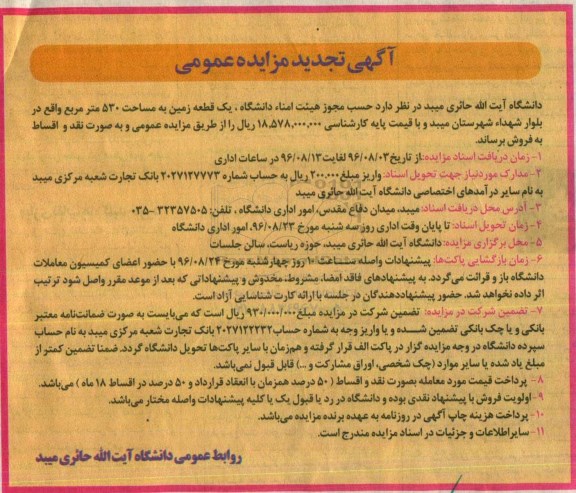 آگهی تجدید مزایده عمومی
دانشگاه آیت الله حائری میبد در نظر دارد حسب مجوز هیئت امناء دانشگاه ، یک قطعه زمین به مساحت ۵۳۰ متر مربع واقع در
بلوار شهداء شهرستان میبد و با قیمت پایه کارشناسی ۱۸,۵۷۸,۰۰۰,۰۰۰ ریال را از طریق مزایده عمومی و به صورت نقد و اقساط
به فروش برساند.
۱- زمان دریافت اسناد مزایده: از تاریخ ۹۶/۰۸/۰۳ لغایت ۹۶/۰۸/۱۳ در ساعات اداری
۲- مدارک موردنیاز جهت تحویل اسناد: واریز مبلغ ۲۰۰,۰۰۰ ریال به حساب شماره ۲۰۲۷۱۲۷۷۷۳ بانک تجارت شعبه مرکزی میبد
به نام سایر درآمدهای اختصاصی دانشگاه آیت الله حائری میبد
۳- آدرس محل دریافت اسناد: میبد، میدان دفاع مقدس، امور اداری دانشگاه ، تلفن: ۳۲۳۵۷۵۰۵ -۰۳۵
۴- زمان تحویل اسناد: تا پایان وقت اداری روز سه شنبه مورخ ۹۶/۰۸/۲۳، امور اداری دانشگاه
۵- محل برگزاری مزایده: دانشگاه آیت الله حائری میبد، حوزه ریاست، سالن جلسات
۶- زمان بازگشایی پاکت‌ها: پیشنهادات واصله ساعت ۱۰ روز چهارشنبه مورخ ۹۶/۰۸/۲۴ با حضور اعضای کمیسیون معاملات
دانشگاه باز و قرائت می‌گردد. به پیشنهادهای فاقد امضا، مشروط، مخدوش و پیشنهاداتی که بعد از موعد مقرر واصل شود ترتیب
اثر داده نخواهد شد. حضور پیشنهاددهندگان در جلسه با ارائه کارت شناسایی آزاد است.
۷- تضمین شرکت در مزایده: تضمین شرکت در مزایده مبلغ ۹۳۰/۰۰۰/۰۰۰ ریال است که می‌بایست به صورت ضمانت‌نامه معتبر
بانکی و یا چک بانکی تضمین شده و یا واریز وجه به شماره حساب ۲۰۲۷۱۲۲۲۳۲ بانک تجارت شعبه مرکزی میبد به نام حساب
سپرده دانشگاه در وجه مزایده گزار در پاکت الف قرار گرفته و هم‌زمان با سایر پاکت‌ها تحویل دانشگاه گردد. ضمنا تضمین کمتر از
مبلغ یاد شده یا سایر موارد (چک شخصی، اوراق مشارکت و ...) قابل قبول نمی‌باشد.
۸- پرداخت قیمت مورد معامله بصورت نقد و اقساط ( ۵۰ درصد همزمان با انعقاد قرارداد و ۵۰ درصد در اقساط ۱۸ ماه ) می‌باشد.
۹- اولویت فروش با پیشنهاد نقدی بوده و دانشگاه در رد یا قبول یک یا کلیه پیشنهادات واصله مختار می‌باشد.
۱۰- پرداخت هزینه چاپ آگهی در روزنامه به عهده برنده مزایده می‌باشد.
۱۱- سایر اطلاعات و جزئیات در اسناد مزایده مندرج است.
روابط عمومی دانشگاه آیت الله حائری میبد